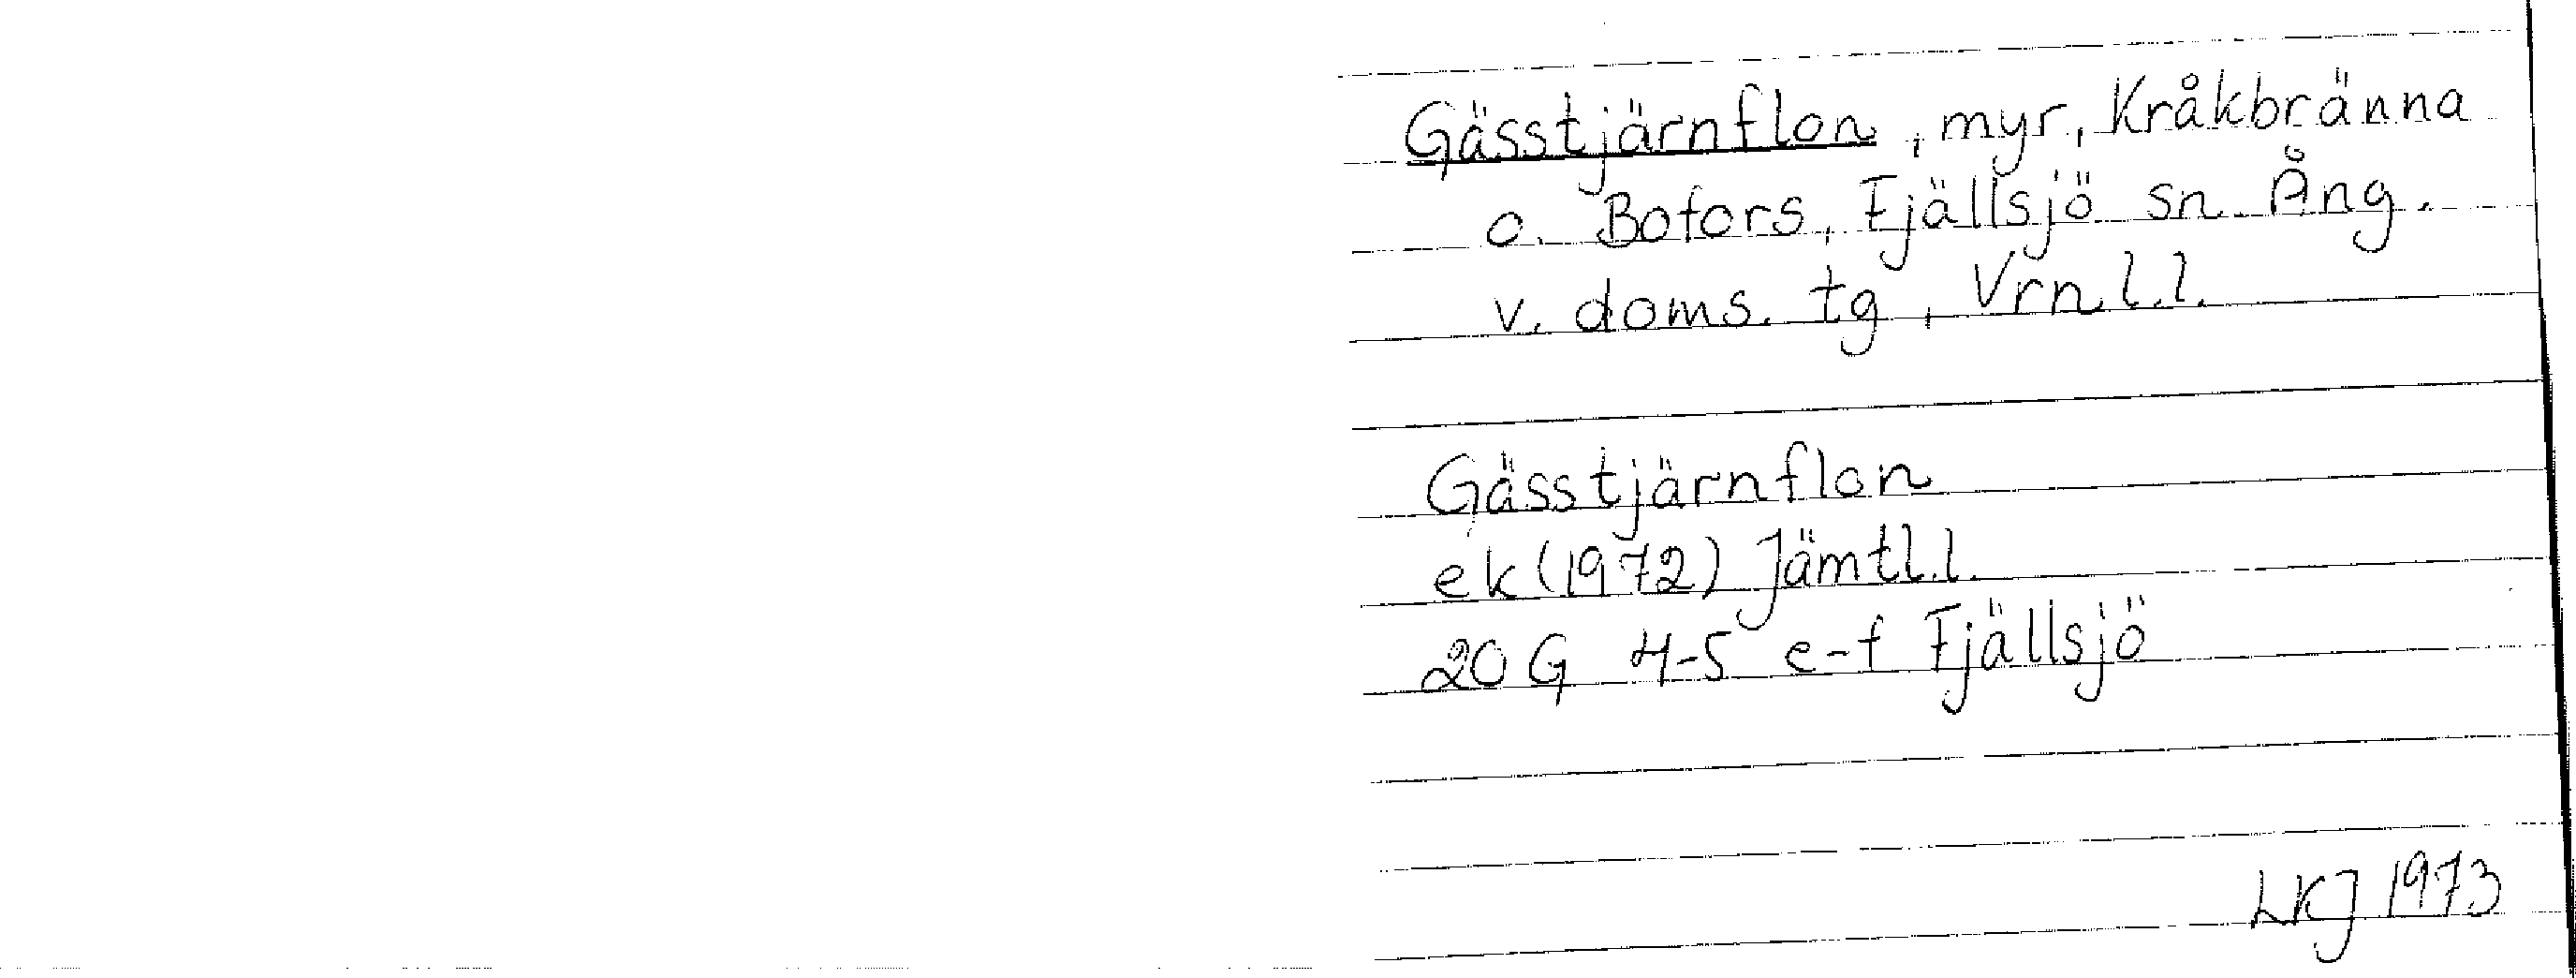 Gässtjärnflon, myr, Kråkbränna
o. Bofors, Fjällsjö sn. Ång.
v. doms. tg, Vrn.l.l.
Gässtjärnflon
ek (1972) Jämtl.l.
20 G 4-5 e-f Fjällsjö
LKJ 1973